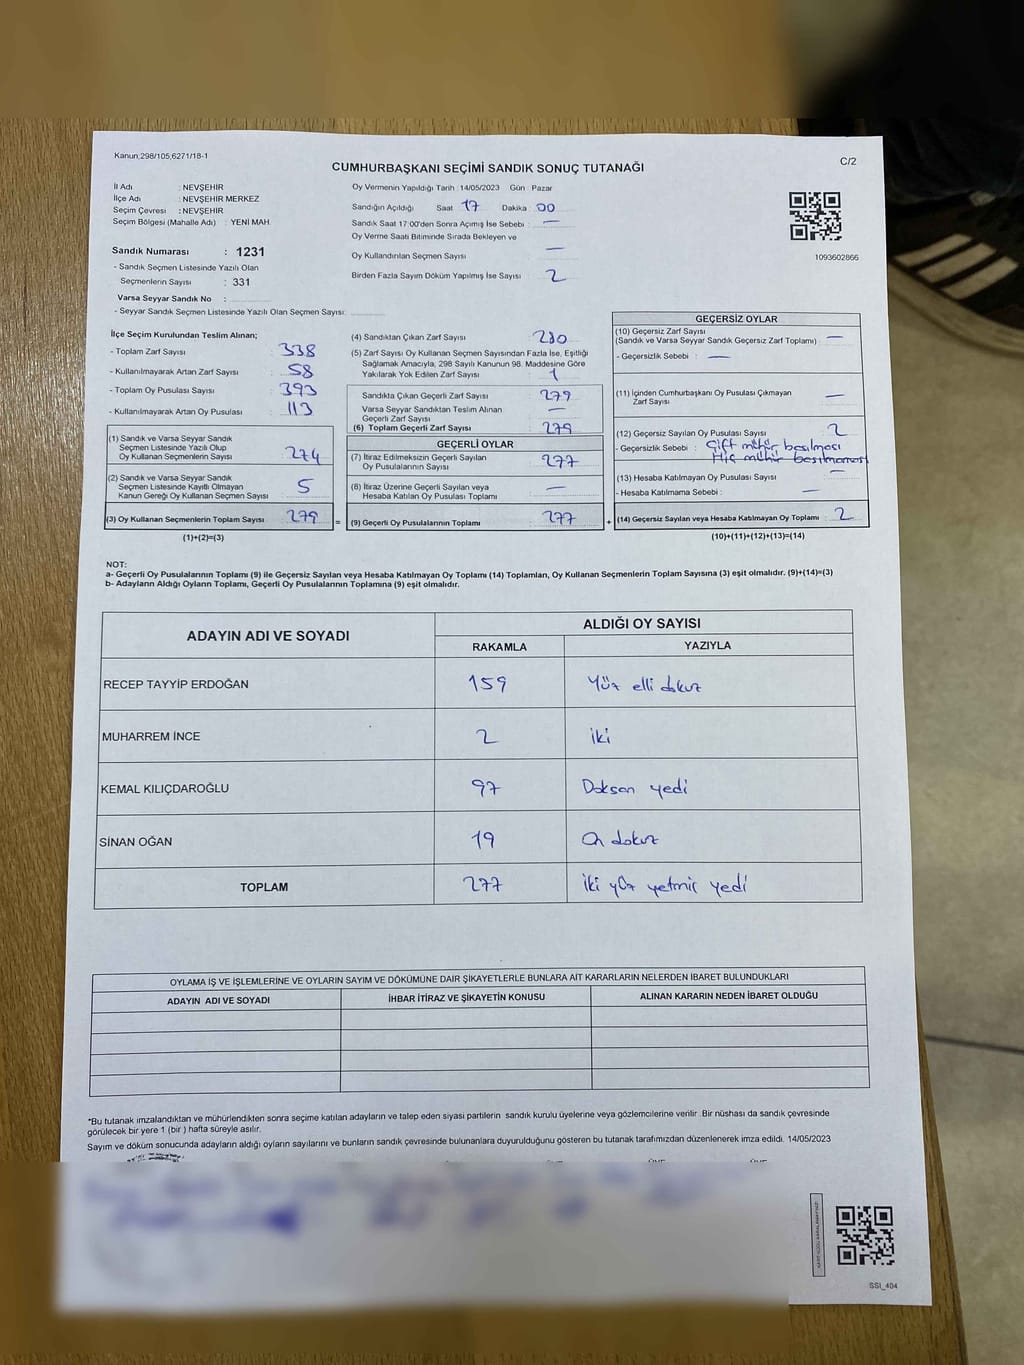 Kanun;298/105,6271/18-1
CUMHURBAŞKANI SEÇİMİ SANDIK SONUÇ TUTANAĞI
C/2
İl Adı : NEVŞEHİR
İlçe Adı : NEVŞEHİR MERKEZ
Seçim Çevresi : NEVŞEHİR
Seçim Bölgesi (Mahalle Adı) : YENİ MAH.
Sandık Numarası : 1231
- Sandık Seçmen Listesinde Yazılı Olan
Seçmenlerin Sayısı : 331
Varsa Seyyar Sandık No :
- Seyyar Sandık Seçmen Listesinde Yazılı Olan Seçmen Sayısı:
Oy Vermenin Yapıldığı Tarih : 14/05/2023 Gün : Pazar
Sandığın Açıldığı Saat 17 Dakika 00
Sandık Saat 17:00'den Sonra Açımış İse Sebebi : —
Oy Verme Saati Bitiminde Sırada Bekleyen ve
Oy Kullandırılan Seçmen Sayısı : —
Birden Fazla Sayım Döküm Yapılmış İse Sayısı : 2
1093602866
İlçe Seçim Kurulundan Teslim Alınan;
- Toplam Zarf Sayısı : 338
- Kullanılmayarak Artan Zarf Sayısı : 58
- Toplam Oy Pusulası Sayısı : 393
- Kullanılmayarak Artan Oy Pusulası : 113
(1) Sandık ve Varsa Seyyar Sandık
Seçmen Listesinde Yazılı Olup
Oy Kullanan Seçmenlerin Sayısı : 274
(2) Sandık ve Varsa Seyyar Sandık
Seçmen Listesinde Kayıtlı Olmayan
Kanun Gereği Oy Kullanan Seçmen Sayısı : 5
(3) Oy Kullanan Seçmenlerin Toplam Sayısı : 279 =
(1)+(2)=(3)
(4) Sandıktan Çıkan Zarf Sayısı : 280
(5) Zarf Sayısı Oy Kullanan Seçmen Sayısından Fazla İse, Eşitliği
Sağlamak Amacıyla, 298 Sayılı Kanunun 98. Maddesine Göre
Yakılarak Yok Edilen Zarf Sayısı : 1
Sandıkta Çıkan Geçerli Zarf Sayısı : 279
Varsa Seyyar Sandıktan Teslim Alınan
Geçerli Zarf Sayısı : —
(6) Toplam Geçerli Zarf Sayısı : 279
GEÇERLİ OYLAR
(7) İtiraz Edilmeksizin Geçerli Sayılan
Oy Pusulalarının Sayısı : 277
(8) İtiraz Üzerine Geçerli Sayılan veya
Hesaba Katılan Oy Pusulası Toplamı : —
(9) Geçerli Oy Pusulalarının Toplamı : 277 +
GEÇERSİZ OYLAR
(10) Geçersiz Zarf Sayısı
(Sandık ve Varsa Seyyar Sandık Geçersiz Zarf Toplamı) : —
- Geçersizlik Sebebi : —
(11) İçinden Cumhurbaşkanı Oy Pusulası Çıkmayan
Zarf Sayısı : —
(12) Geçersiz Sayılan Oy Pusulası Sayısı : 2
- Geçersizlik Sebebi : Çift mühür basılması
Hiç mühür basılmaması
(13) Hesaba Katılmayan Oy Pusulası Sayısı : —
- Hesaba Katılmama Sebebi : —
(14) Geçersiz Sayılan veya Hesaba Katılmayan Oy Toplamı : 2
(10)+(11)+(12)+(13)=(14)
NOT:
a- Geçerli Oy Pusulalarının Toplamı (9) ile Geçersiz Sayılan veya Hesaba Katılmayan Oy Toplamı (14) Toplamları, Oy Kullanan Seçmenlerin Toplam Sayısına (3) eşit olmalıdır. (9)+(14)=(3)
b- Adayların Aldığı Oyların Toplamı, Geçerli Oy Pusulalarının Toplamına (9) eşit olmalıdır.
ADAYIN ADI VE SOYADI
ALDIĞI OY SAYISI
RAKAMLA YAZIYLA
RECEP TAYYİP ERDOĞAN 159 Yüz elli dokuz
MUHARREM İNCE 2 iki
KEMAL KILIÇDAROĞLU 97 Doksan yedi
SİNAN OĞAN 19 On dokuz
TOPLAM 277 iki yüz yetmiş yedi
OYLAMA İŞ VE İŞLEMLERİNE VE OYLARIN SAYIM VE DÖKÜMÜNE DAİR ŞİKAYETLERLE BUNLARA AİT KARARLARIN NELERDEN İBARET BULUNDUKLARI
ADAYIN ADI VE SOYADI İHBAR İTİRAZ VE ŞİKAYETİN KONUSU ALINAN KARARIN NEDEN İBARET OLDUĞU
*Bu tutanak imzalandıktan ve mühürlendikten sonra seçime katılan adayların ve talep eden siyasi partilerin sandık kurulu üyelerine veya gözlemcilerine verilir .Bir nüshası da sandık çevresinde
görülecek bir yere 1 (bir ) hafta süreyle asılır.
Sayım ve döküm sonucunda adayların aldığı oyların sayılarını ve bunların sandık çevresinde bulunanlara duyurulduğunu gösteren bu tutanak tarafımızdan düzenlenerek imza edildi. 14/05/2023
SSI_404